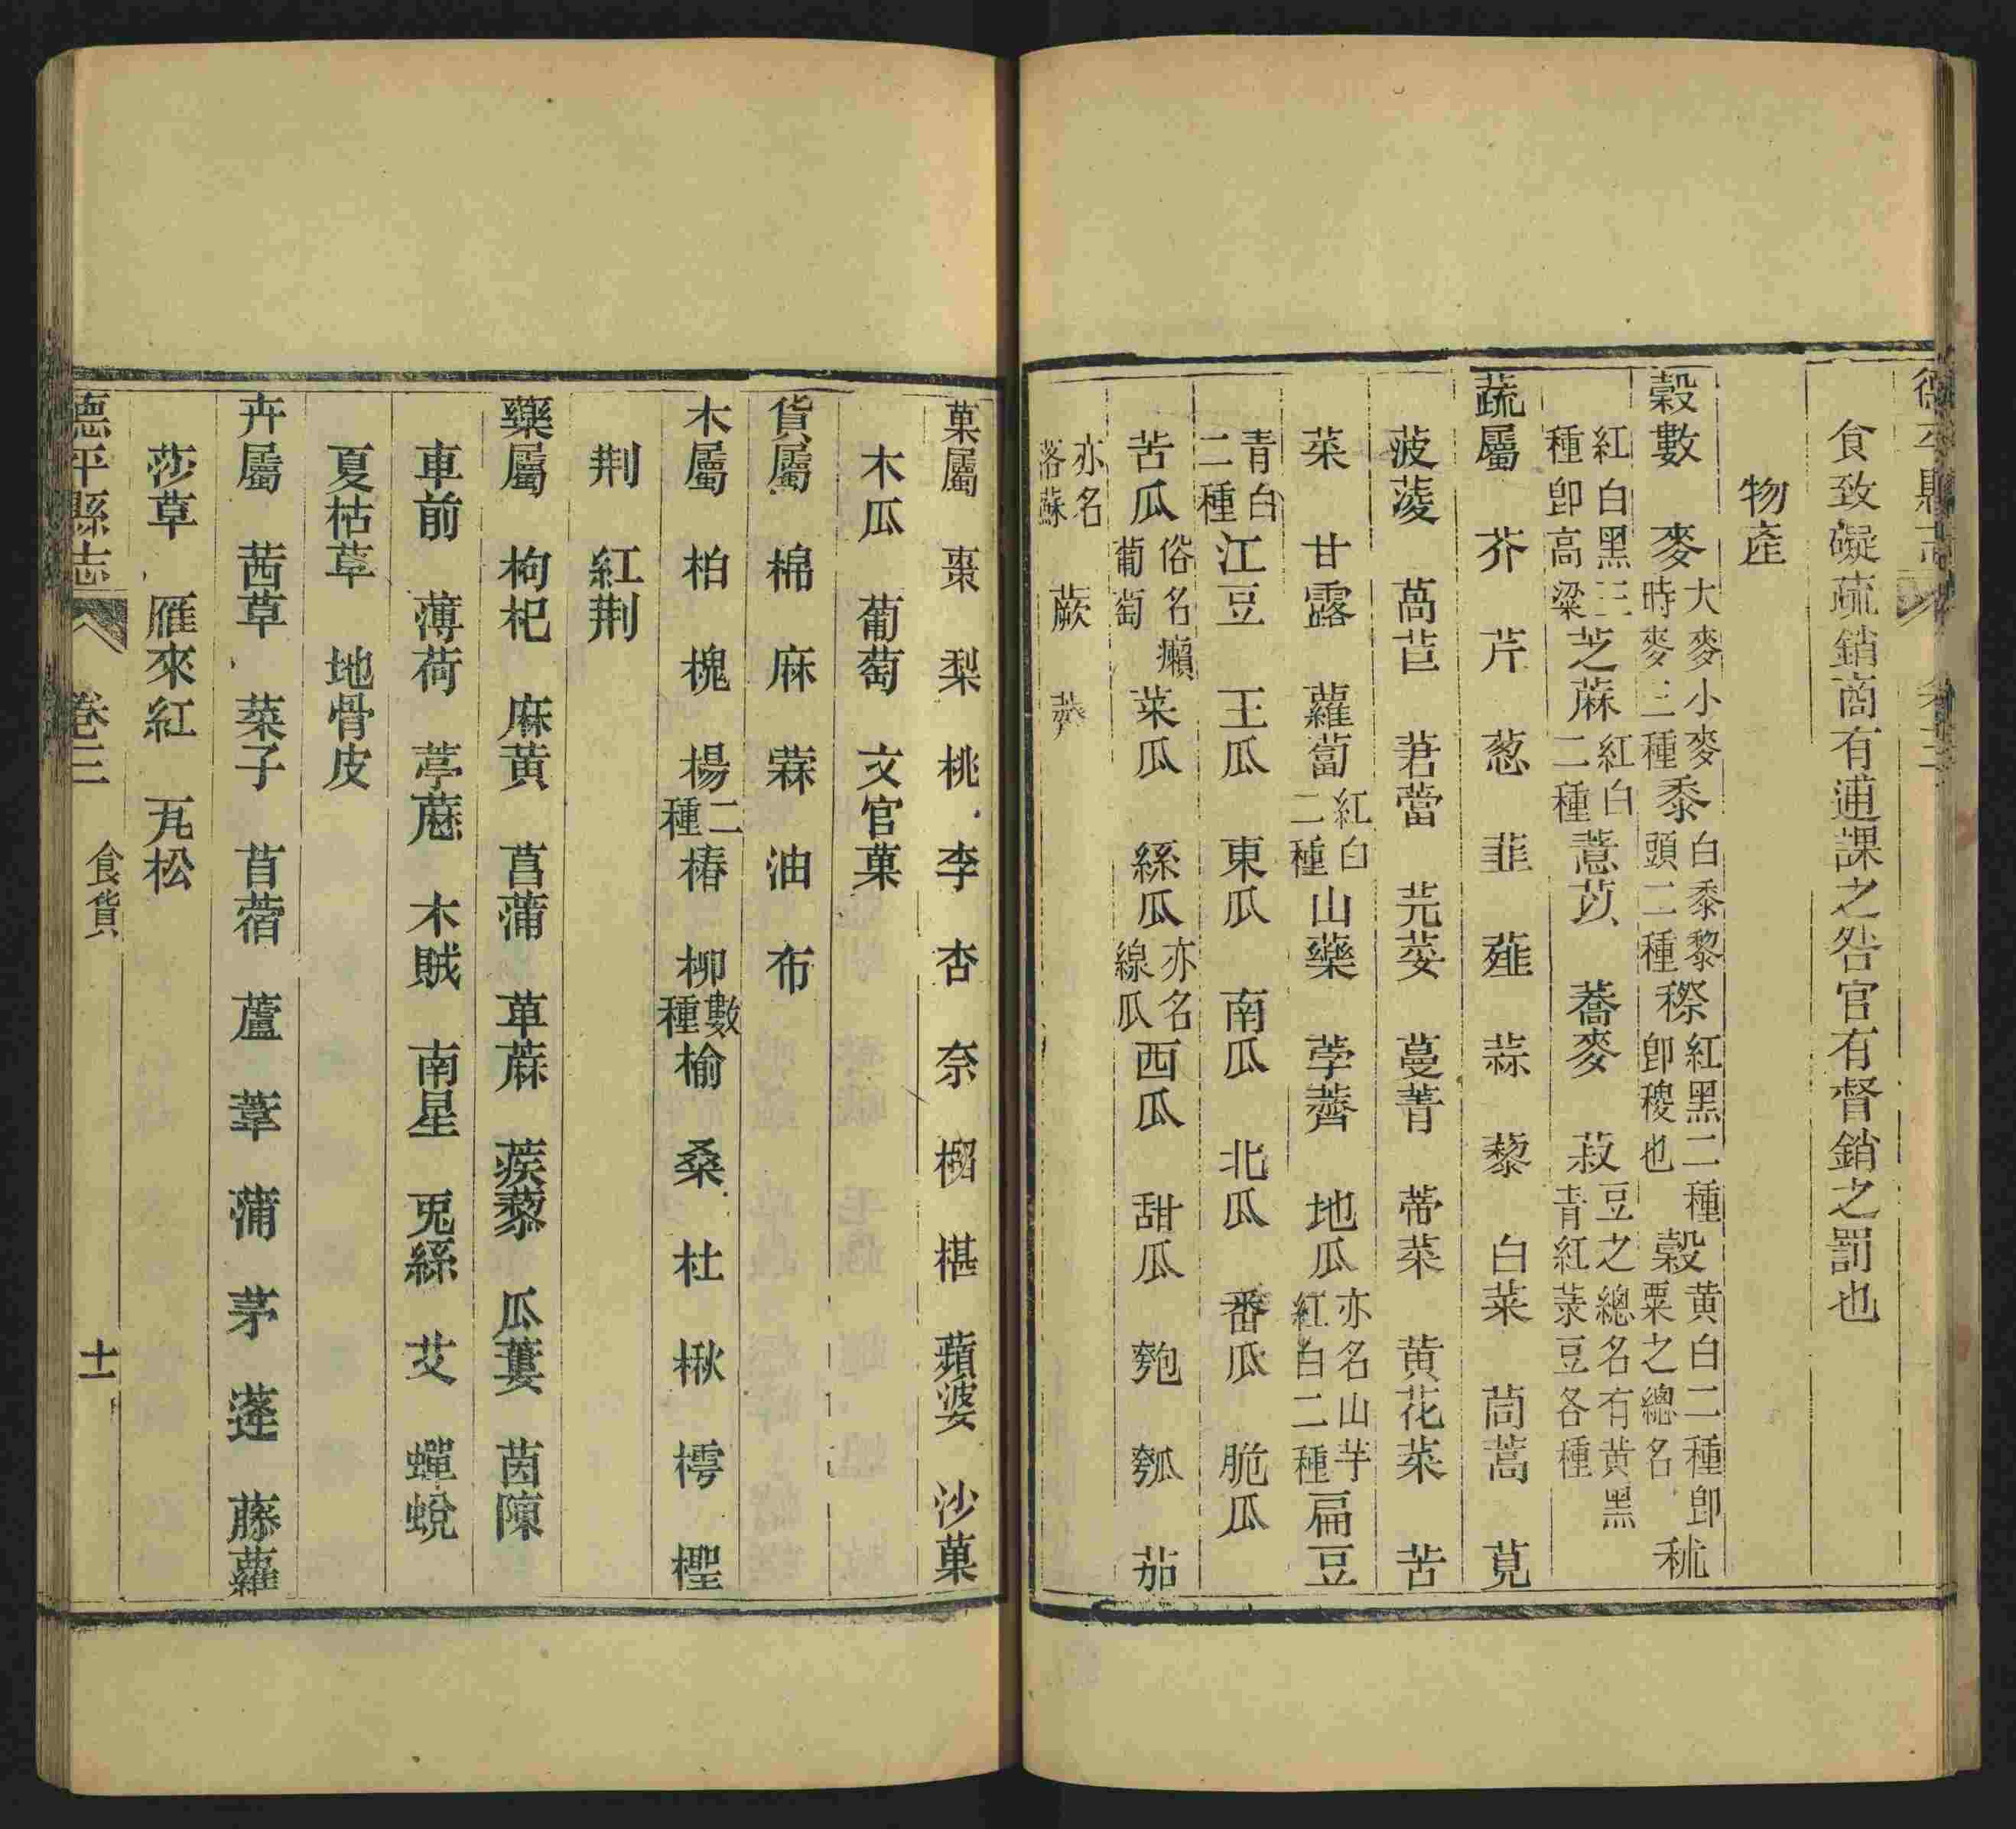 德平縣志 卷三
食致礙疏銷商有逋課之咎官有督銷之罰也
物產
穀數 麥大麥小麥時麥三種 黍白黍黎頭二種 穄紅黑二種卽稷也 穀黃白二種卽粟之總名 秫
紅白黑三種卽高粱 芝蔴紅白二種 薏苡 蕎麥 菽豆之總名有黃黑青紅菉豆各種
蔬屬 芥 芹 葱 韭 薤 蒜 藜 白菜 茼蒿 莧
菠薐 萵苣 莙薘 芫荽 蔓菁 蒂菜 黃花菜 苦
菜 甘露 蘿蔔紅白二種 山藥 荸薺 地瓜亦名山芋紅白二種 扁豆
青白二種 江豆 王瓜 東瓜 南瓜 北瓜 番瓜 脆瓜
苦瓜俗名癩葡萄 菜瓜 絲瓜亦名線瓜 西瓜 甜瓜 匏 瓠 茄
亦名落蘇 蕨
菓屬 棗 梨 桃 李 杏 奈 榴 椹 蘋婆 沙菓
木瓜 葡萄 文官菓
貨屬 棉 麻 蔴 油 布
木屬 柏 槐 楊二種 椿 柳數種 榆 桑 杜 楸 樗 檉
荆 紅荆
藥屬 枸杞 麻黃 菖蒲 萆蔴 蒺藜 瓜蔞 茵陳
車前 薄荷 葶藶 木賊 南星 兎絲 艾 蟬蛻
夏枯草 地骨皮
卉屬 茜草 菜子 苜蓿 蘆 葦 蒲 茅 蓬 藤蘿
莎草 雁來紅 瓦松
德平縣志 卷三 食貨 十一